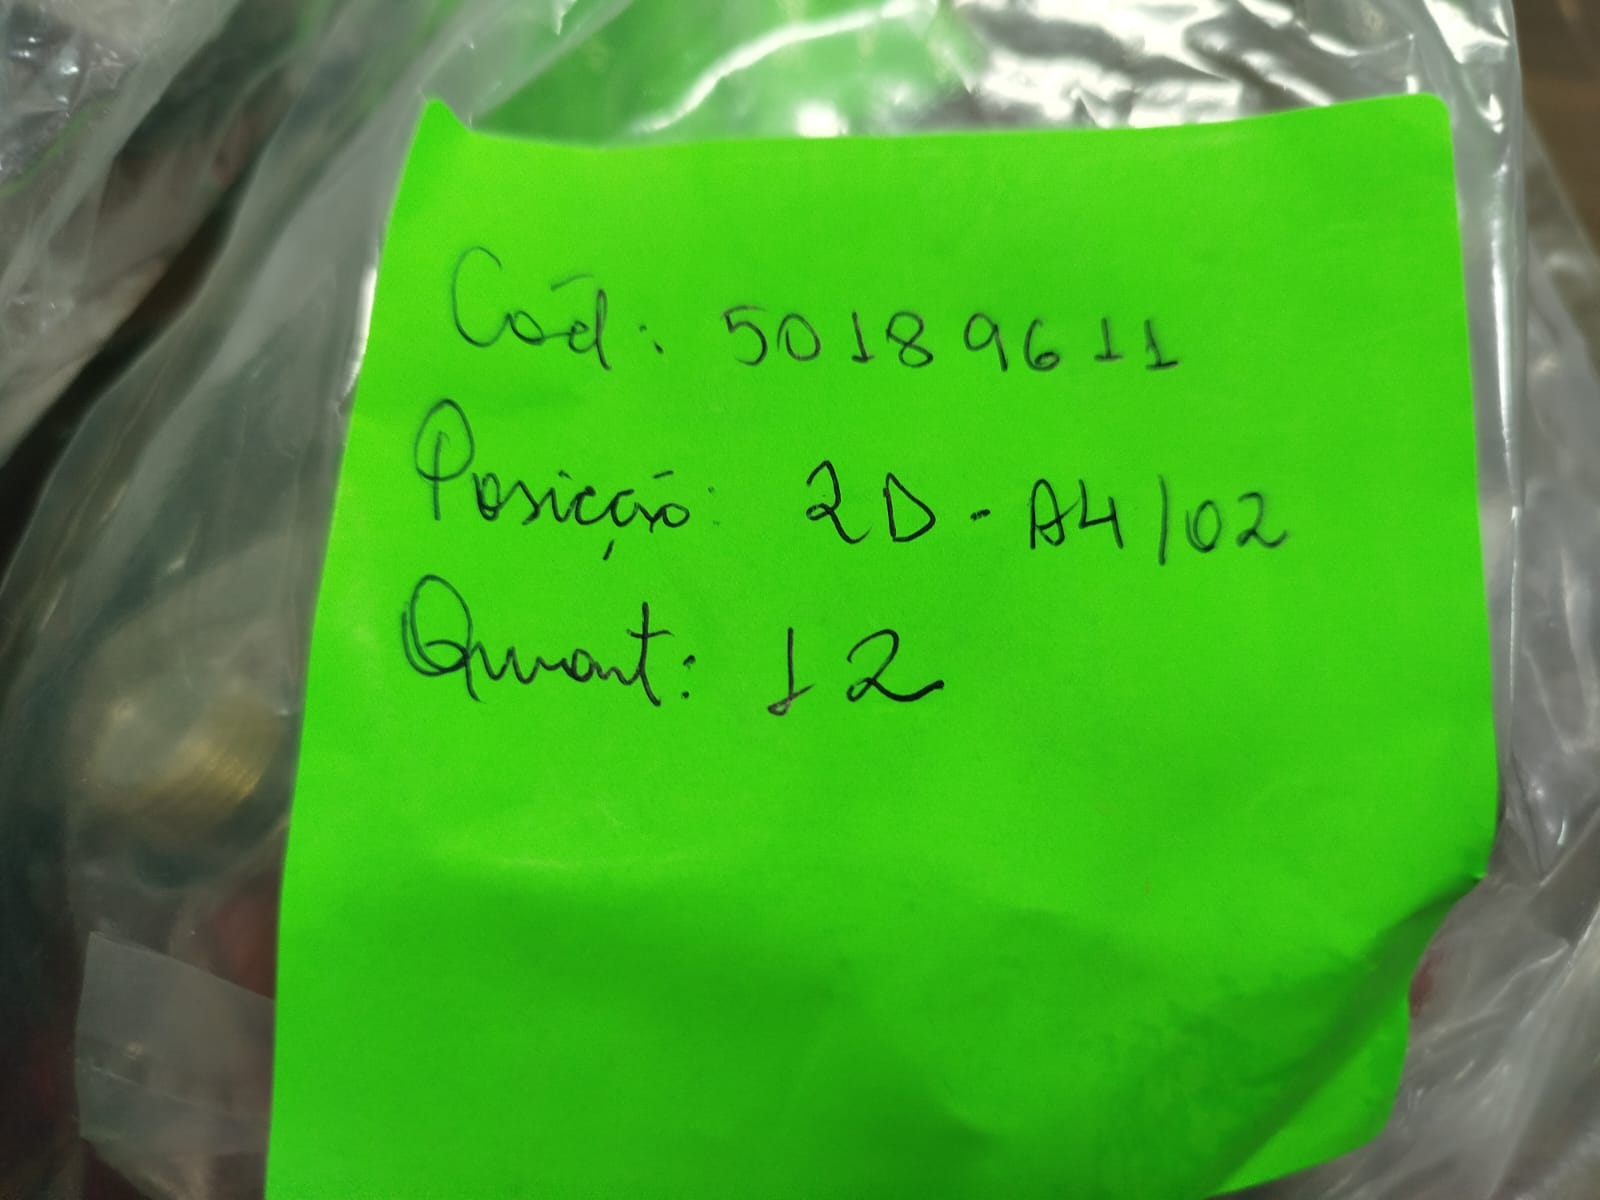 Cód: 50189611
Posição: 2D - A4/02
Quant: 12